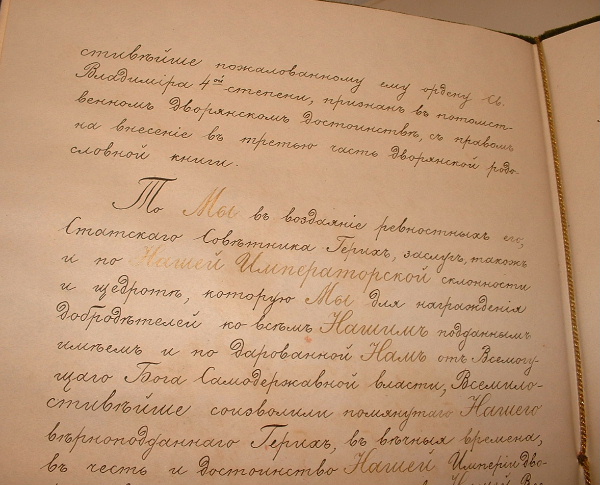 стивѣйше пожалованному ему ордену Св.
Владиміра 4ой степени, признанъ въ потомст-
венномъ Дворянскомъ Достоинствѣ, съ правомъ
на внесеніе въ третью часть Дворянской родо-
словной книги.
То Мы въ воздаяніе ревностныхъ его,
Статскаго Совѣтника Герихъ, заслугъ, такожъ
и по Нашей Императорской склонности
и щедротѣ, которую Мы для награжденія
Добродѣтелей ко всѣмъ Нашимъ подданнымъ
имѣемъ и по Дарованной Намъ отъ Всемогу-
щаго Бога Самодержавной власти, Всемило-
стивѣйше соизволили помянутаго Нашего
вѣрноподданнаго Герихъ, въ вѣчныя времена,
въ честь и Достоинство Нашей Имперіи Дво-